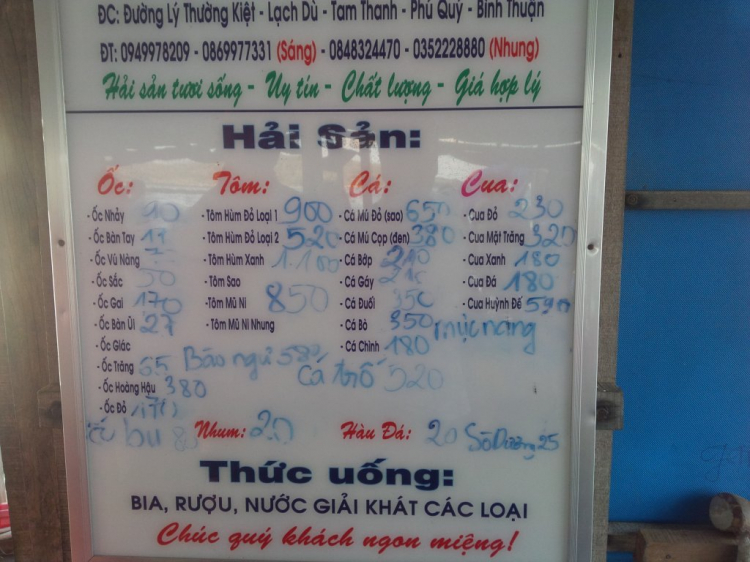 ĐC: Đường Lý Thường Kiệt - Lạch Dù - Tam Thanh - Phú Quý - Bình Thuận
ĐT: 0949978209 - 0869977331 (Sáng) - 0848324470 - 0352228880 (Nhung)
Hải sản tươi sống - Uy tín - Chất lượng - Giá hợp lý
Hải Sản:
Ốc:
- Ốc Nhảy 90
- Ốc Bàn Tay
- Ốc Vú Nàng
- Ốc Sắc 50
- Ốc Gai 170
- Ốc Bàn Ủi 27
- Ốc Giác
- Ốc Trắng 65
- Ốc Hoàng Hậu 380
- Ốc Đỏ 170
bu
Tôm:
- Tôm Hùm Đỏ Loại 1 900
- Tôm Hùm Đỏ Loại 2 520
- Tôm Hùm Xanh 1.100
- Tôm Sao
- Tôm Mũ Ni 850
- Tôm Mũ Ni Nhung
Bào ngư 580
Cá:
- Cá Mú Đỏ (sao) 650
- Cá Mú Cọp (đen) 380
- Cá Bớp 240
- Cá Gáy
- Cá Đuối 350
- Cá Bò 350
- Cá Chình 180
Cá 520
Cua:
- Cua Đỏ 230
- Cua Mặt Trăng 320
- Cua Xanh 180
- Cua Đá 180
- Cua Huỳnh Đế 590
mực nang
Nhum: 20
Hàu Đá: 20
Sò Dương 25
Thức uống:
BIA, RƯỢU, NƯỚC GIẢI KHÁT CÁC LOẠI
Chúc quý khách ngon miệng!